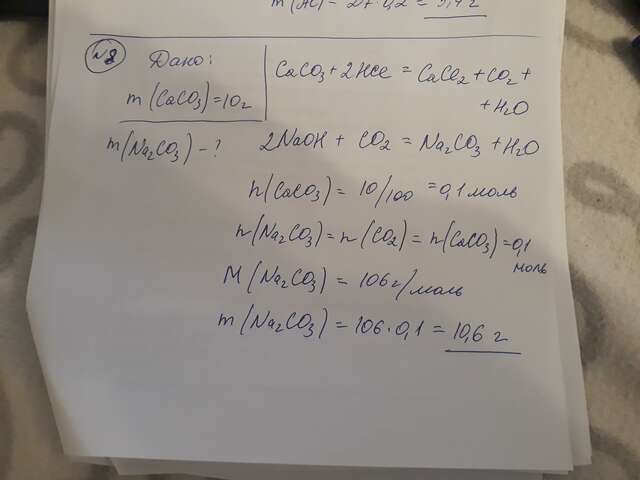 m(Al) = 27·0,2 = 5,4 г
№8
Дано:
m(CaCO₃)=10г
m(Na₂CO₃) - ?
CaCO₃ + 2HCl = CaCl₂ + CO₂ +
+ H₂O
2NaOH + CO₂ = Na₂CO₃ + H₂O
n(CaCO₃) = 10/100 = 0,1 моль
n(Na₂CO₃) = n(CO₂) = n(CaCO₃) = 0,1
моль
M(Na₂CO₃) = 106 г/моль
m(Na₂CO₃) = 106·0,1 = 10,6 г